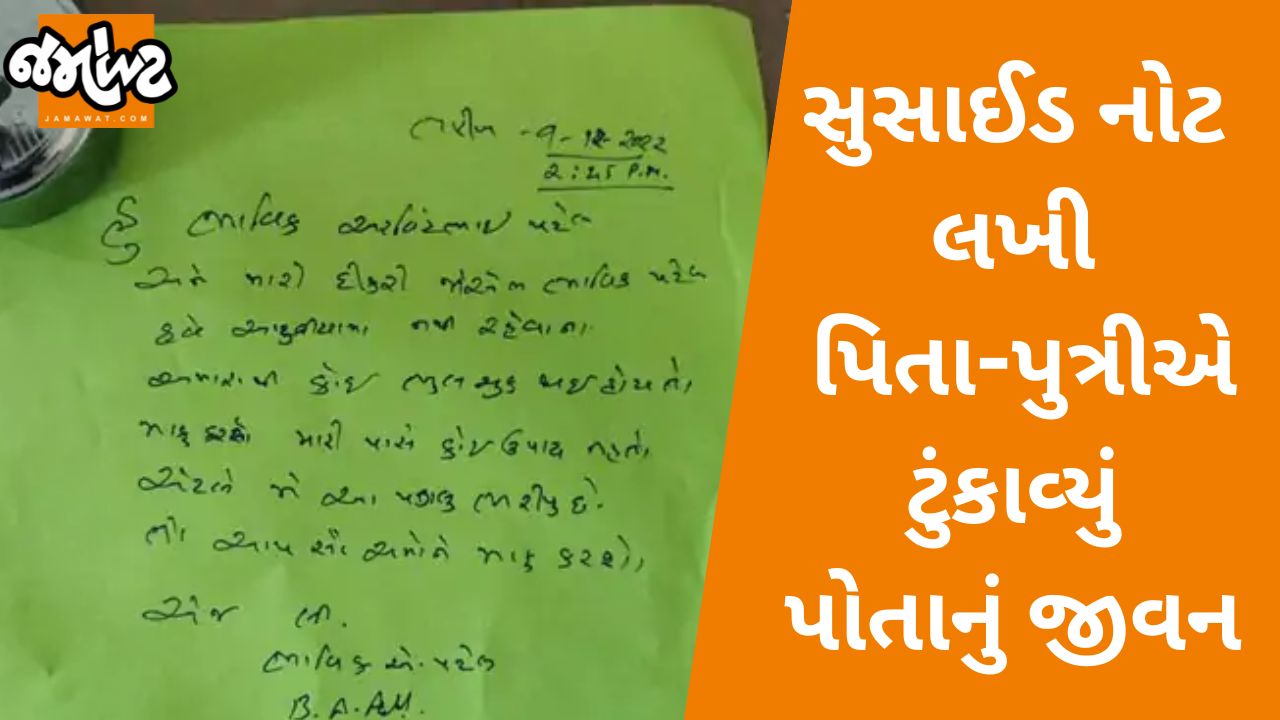 જમાવટ
JAMAWAT.COM
તારીખ - 9-12-2022
2:45 P.M.
હું ભાવિક અરવિંદભાઇ પટેલ
અને મારી દીકરી ભાવિક પટેલ
હવે આ દુનીયામા નથી રહેવાના
અમારાથી કોઇ ભુલ ચુક થઇ હોય તો
માફ કરશો મારી પાસે કોઇ ઉપાય નહતો
એટલે મે આ પગલુ ભરીયુ છે.
તો આપ સૌ અમોને માફ કરશો
એજ લી.
ભાવિક એ. પટેલ
સુસાઈડ નોટ
લખી
પિતા-પુત્રીએ
ટુંકાવ્યું
પોતાનું જીવન